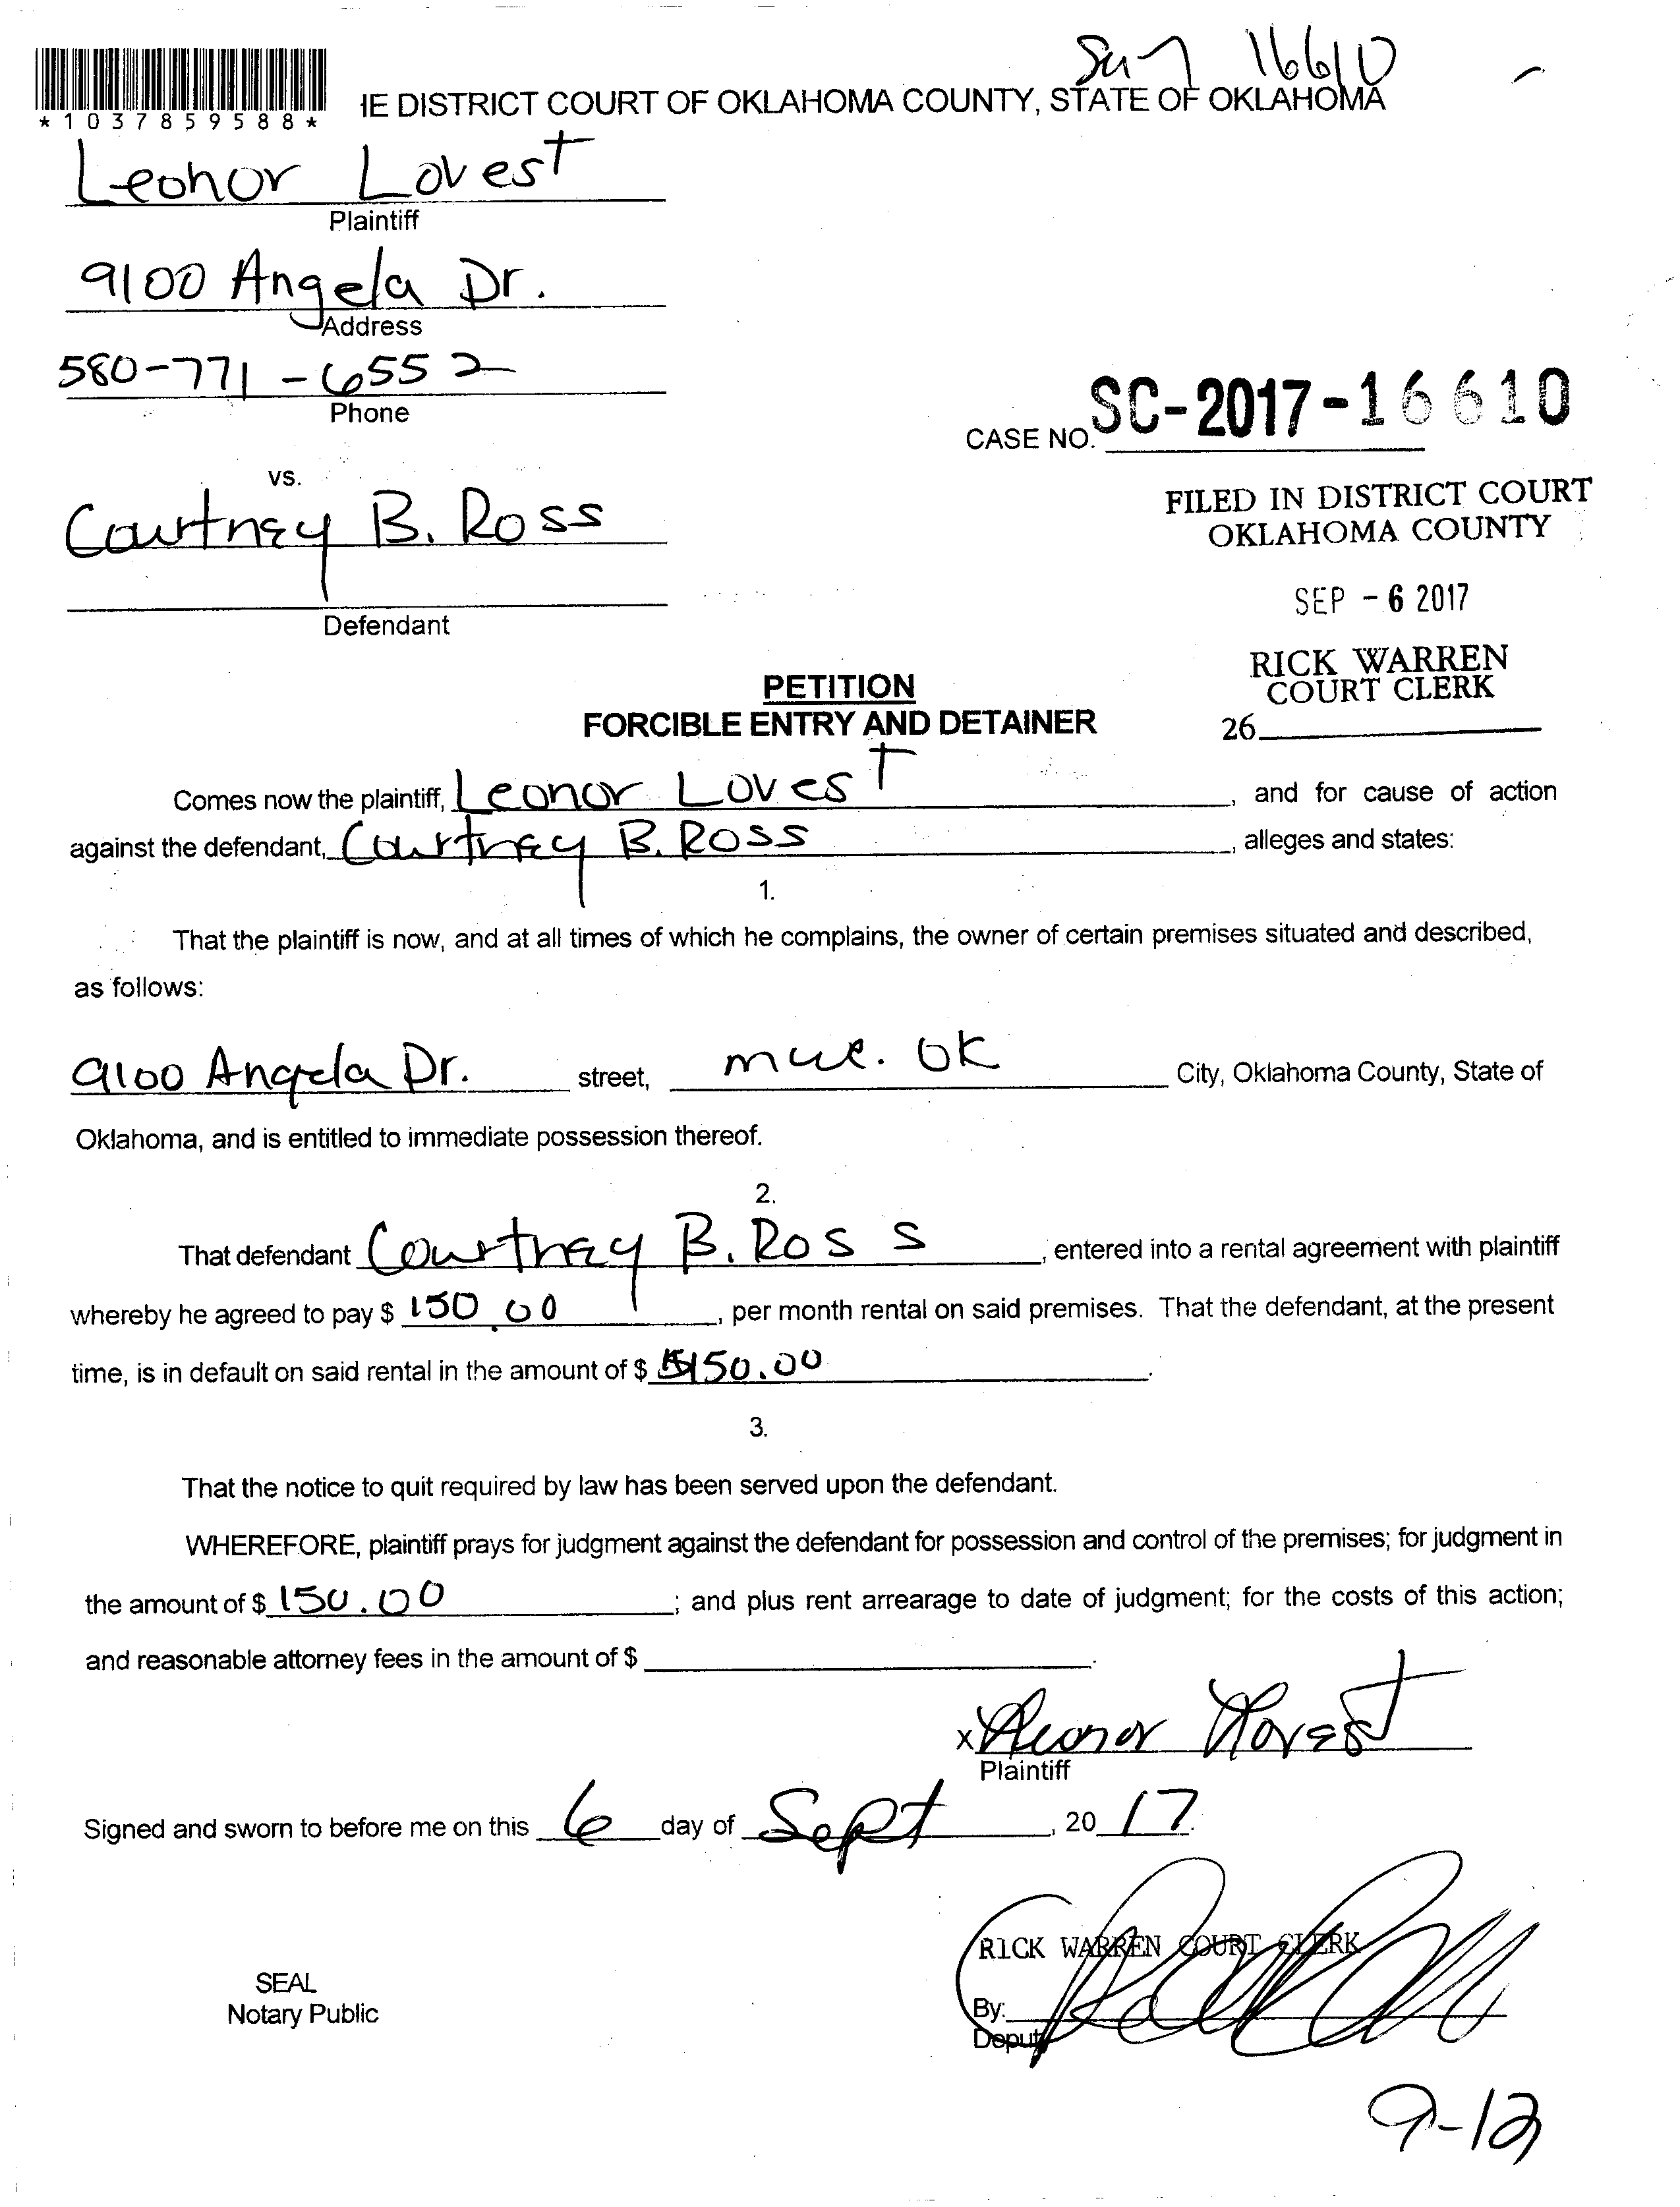 16610
*1037859588*
IE DISTRICT COURT OF OKLAHOMA COUNTY, STATE OF OKLAHOMA
Leonor Lovest
Plaintiff
9100 Angela Dr.
Address
580-771-6552
Phone
CASE NO. SC-2017-16610
vs.
Courtney B. Ross
Defendant
FILED IN DISTRICT COURT
OKLAHOMA COUNTY
SEP - 6 2017
RICK WARREN
COURT CLERK
26
PETITION
FORCIBLE ENTRY AND DETAINER
Comes now the plaintiff, Leonor Lovest, and for cause of action
against the defendant, Courtney B. Ross, alleges and states:
1.
That the plaintiff is now, and at all times of which he complains, the owner of certain premises situated and described,
as follows:
9100 Angela Dr. street, mwc. OK City, Oklahoma County, State of
Oklahoma, and is entitled to immediate possession thereof.
2.
That defendant Courtney B. Ross, entered into a rental agreement with plaintiff
whereby he agreed to pay $ 150.00, per month rental on said premises. That the defendant, at the present
time, is in default on said rental in the amount of $ 150.00.
3.
That the notice to quit required by law has been served upon the defendant.
WHEREFORE, plaintiff prays for judgment against the defendant for possession and control of the premises; for judgment in
the amount of $ 150.00; and plus rent arrearage to date of judgment; for the costs of this action;
and reasonable attorney fees in the amount of $.
x Leonor Lovest
Plaintiff
Signed and sworn to before me on this 6 day of Sept, 2017.
RICK WARREN COURT CLERK
SEAL
Notary Public
By:
Deputy
9-12